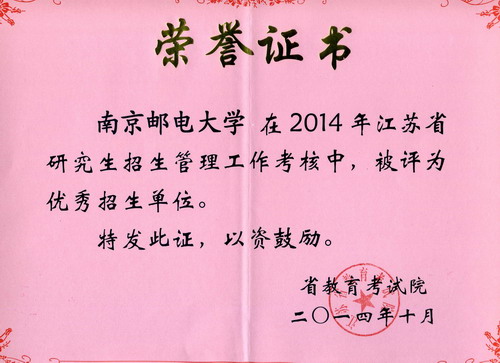 荣誉证书
南京邮电大学 在 2014 年江苏省
研究生招生管理工作考核中，被评为
优秀招生单位。
特发此证，以资鼓励。
省教育考试院
二〇一四年十月